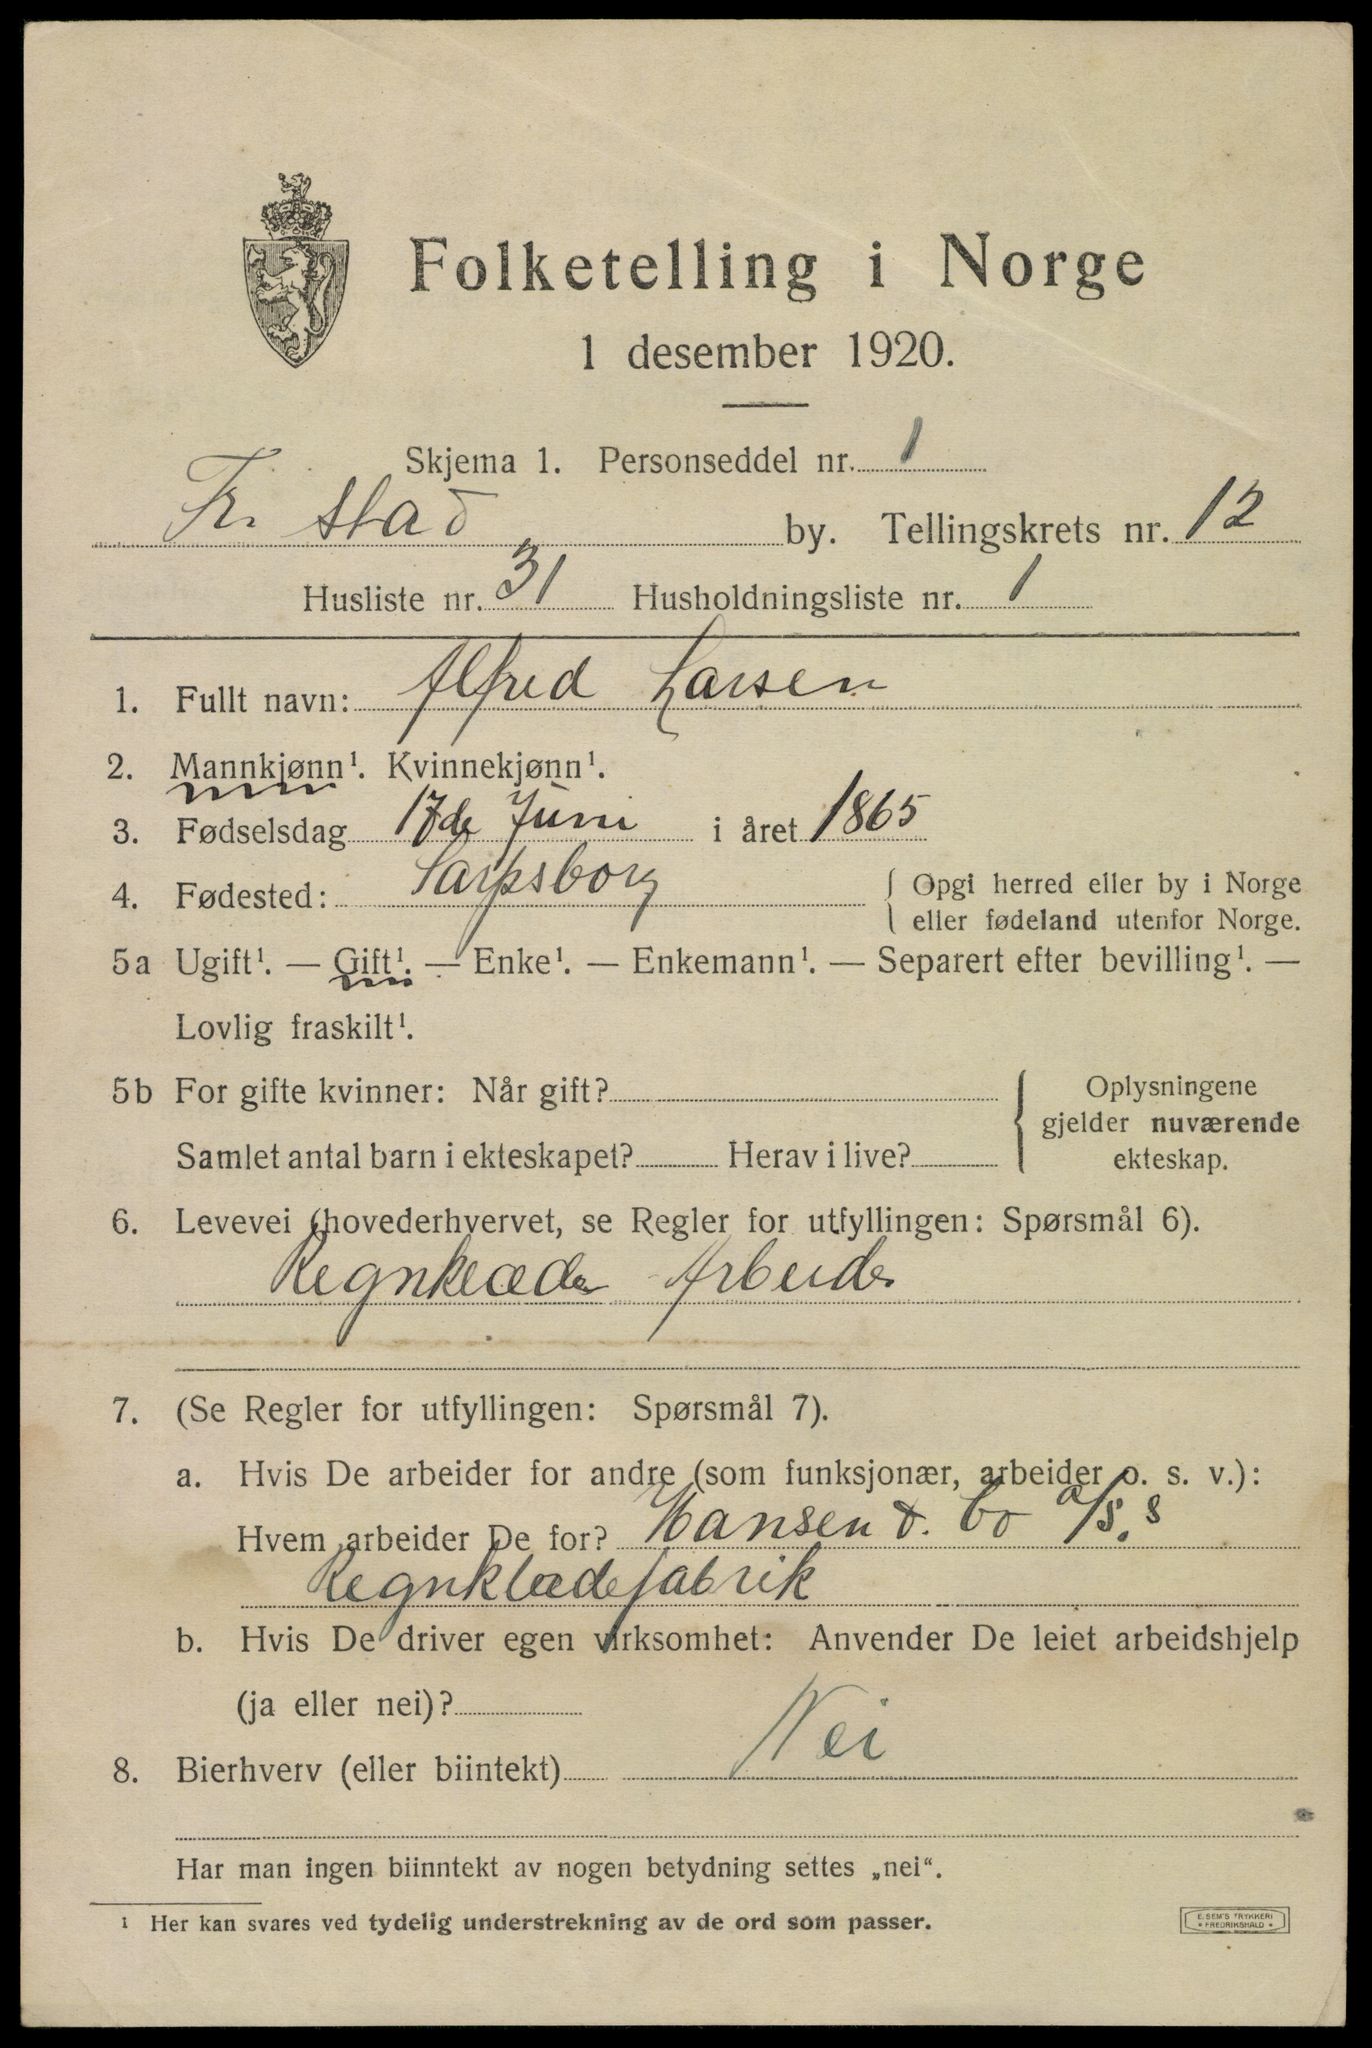 Folketelling i Norge
1 desember 1920.
Skjema 1. Personseddel nr. 1
Fr. stad by. Tellingskrets nr. 12
Husliste nr. 31 Husholdningsliste nr. 1
1. Fullt navn: Alfred Larsen
2. Mannkjønn¹. Kvinnekjønn¹.
3. Fødselsdag 17de Juni i året 1865
4. Fødested: Sarpsborg { Opgi herred eller by i Norge
eller fødeland utenfor Norge.
5a Ugift¹. — Gift¹. — Enke¹. — Enkemann¹. — Separert efter bevilling¹. —
Lovlig fraskilt¹.
5b For gifte kvinner: Når gift? { Oplysningene
gjelder nuværende
Samlet antal barn i ekteskapet? Herav i live? ekteskap.
6. Levevei (hovederhvervet, se Regler for utfyllingen: Spørsmål 6).
Regnklæde Arbeider
7. (Se Regler for utfyllingen: Spørsmål 7).
a. Hvis De arbeider for andre (som funksjonær, arbeider o. s. v.):
Hvem arbeider De for? Hansen & Co A/S.s
Regnklædefabrik
b. Hvis De driver egen virksomhet: Anvender De leiet arbeidshjelp
(ja eller nei)?
8. Bierhverv (eller biintekt) Nei
Har man ingen biinntekt av nogen betydning settes „nei“.
¹ Her kan svares ved tydelig understrekning av de ord som passer.
E. SEM'S TRYKKERI
* FREDRIKSHALD *